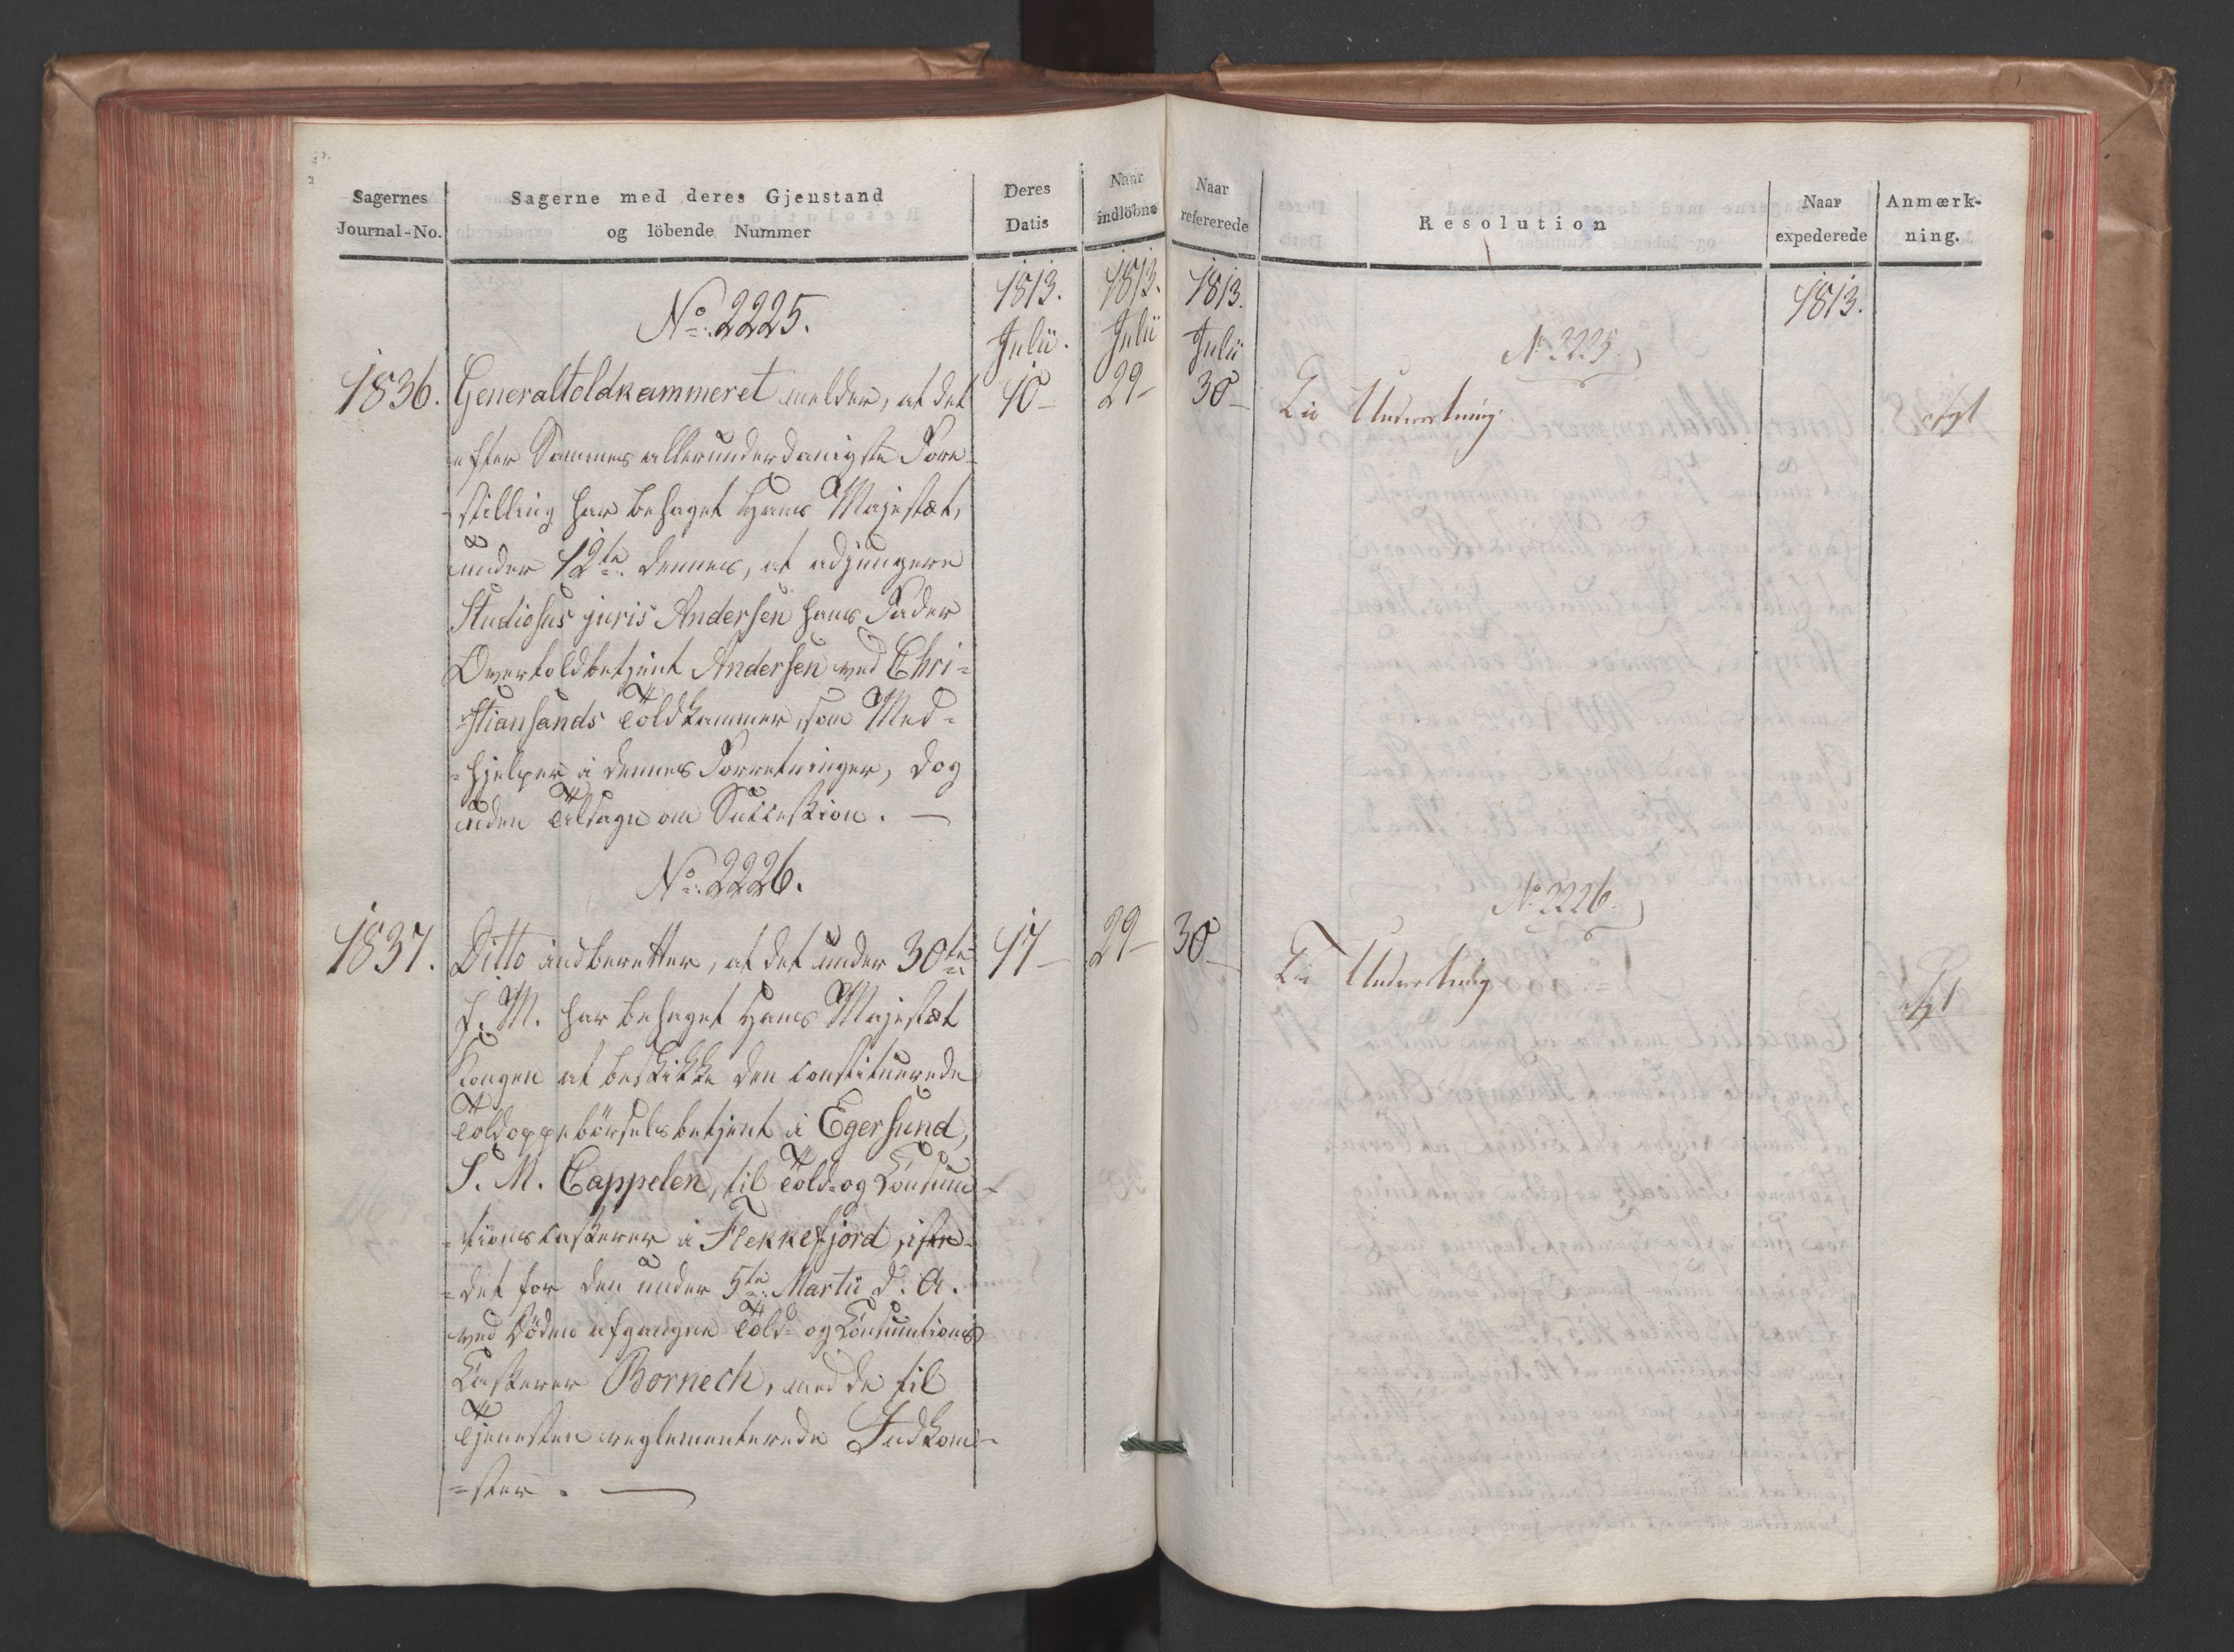 Sagernes
Journal-No.
Sagerne med deres Gjenstand
og löbende Nummer
Deres
Datis
Naar
indlöbne
1813. 1813.
No. 2225.
Julii. Julii
1836. Generaltoldkammeret melder, at det 10– 29–
efter Sammes allerunderdanigste Fore-
-stilling har behaget Hans Majestæt,
under 12te dennes, at adjungere
Studiosus juris Andersen hans Fader
Overtoldbetjent Andersen ved Chri=
=stiansands Toldkammer, som Med=
=hjelper i dennes Forretninger, dog
uden Tilsagn om Succession. —
No. 2226.
1837. Ditto indberetter, at det under 30te 17– 29–
f. M. har behaget Hans Majestæt
Kongen at beskikke den constituerede
Toldoppebörselsbetjent i Egersund,
J. M. Cappelen, til Told- og Consum-
=tionscasserer i Flekkefjord, iste-
=det for den under 5te Martii d. A.
ved Döden afgangne Told- og Consumtions
Casserer Bornech, med de til
Tjenesten reglementerede Indkom-
=ster. —
Naar
refererede
Resolution
Naar
expederede
Anmærk-
ning.
1813. 1813.
Julii No 2225.
30– Til Underretning. afgt
No 2226.
30– Til Underretning afgt